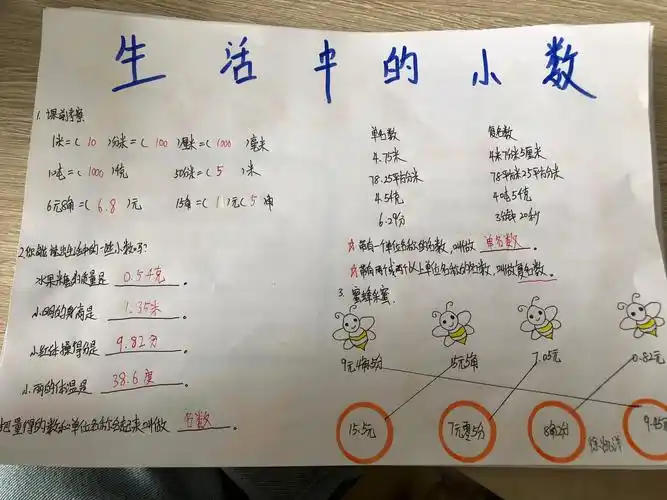 生活中的小数
1. 课前考察
1米=( 10 )分米=( 100 )厘米=( 1000 )毫米
=( 1000 )千克 50分米=( 5 )米
6元8角=( 6.8 )元 15角=( 1 )元( 5 )角
2. 你能说出生活中的一些小数吗?
水果糖的质量是 0.5千克。
小明的身高是 1.35米。
小红体操得分是 9.82分。
小丽的体温是 38.6度。
把量得的数和单位名称合起来叫做 名数。
单名数 复名数
4.75米 4米7分米5厘米
78.25平方分米 78平方米25平方分米
4.5千克
6.2分
带有一个单位名称的名数,叫做 单名数。
带有两个或两个以上单位名称的名数,叫做复名数。
3. 蜜蜂采蜜.
9元4角5分 15元5角 7.05元 0.82元
15.5元 7元零5分 8角2分 9.45元